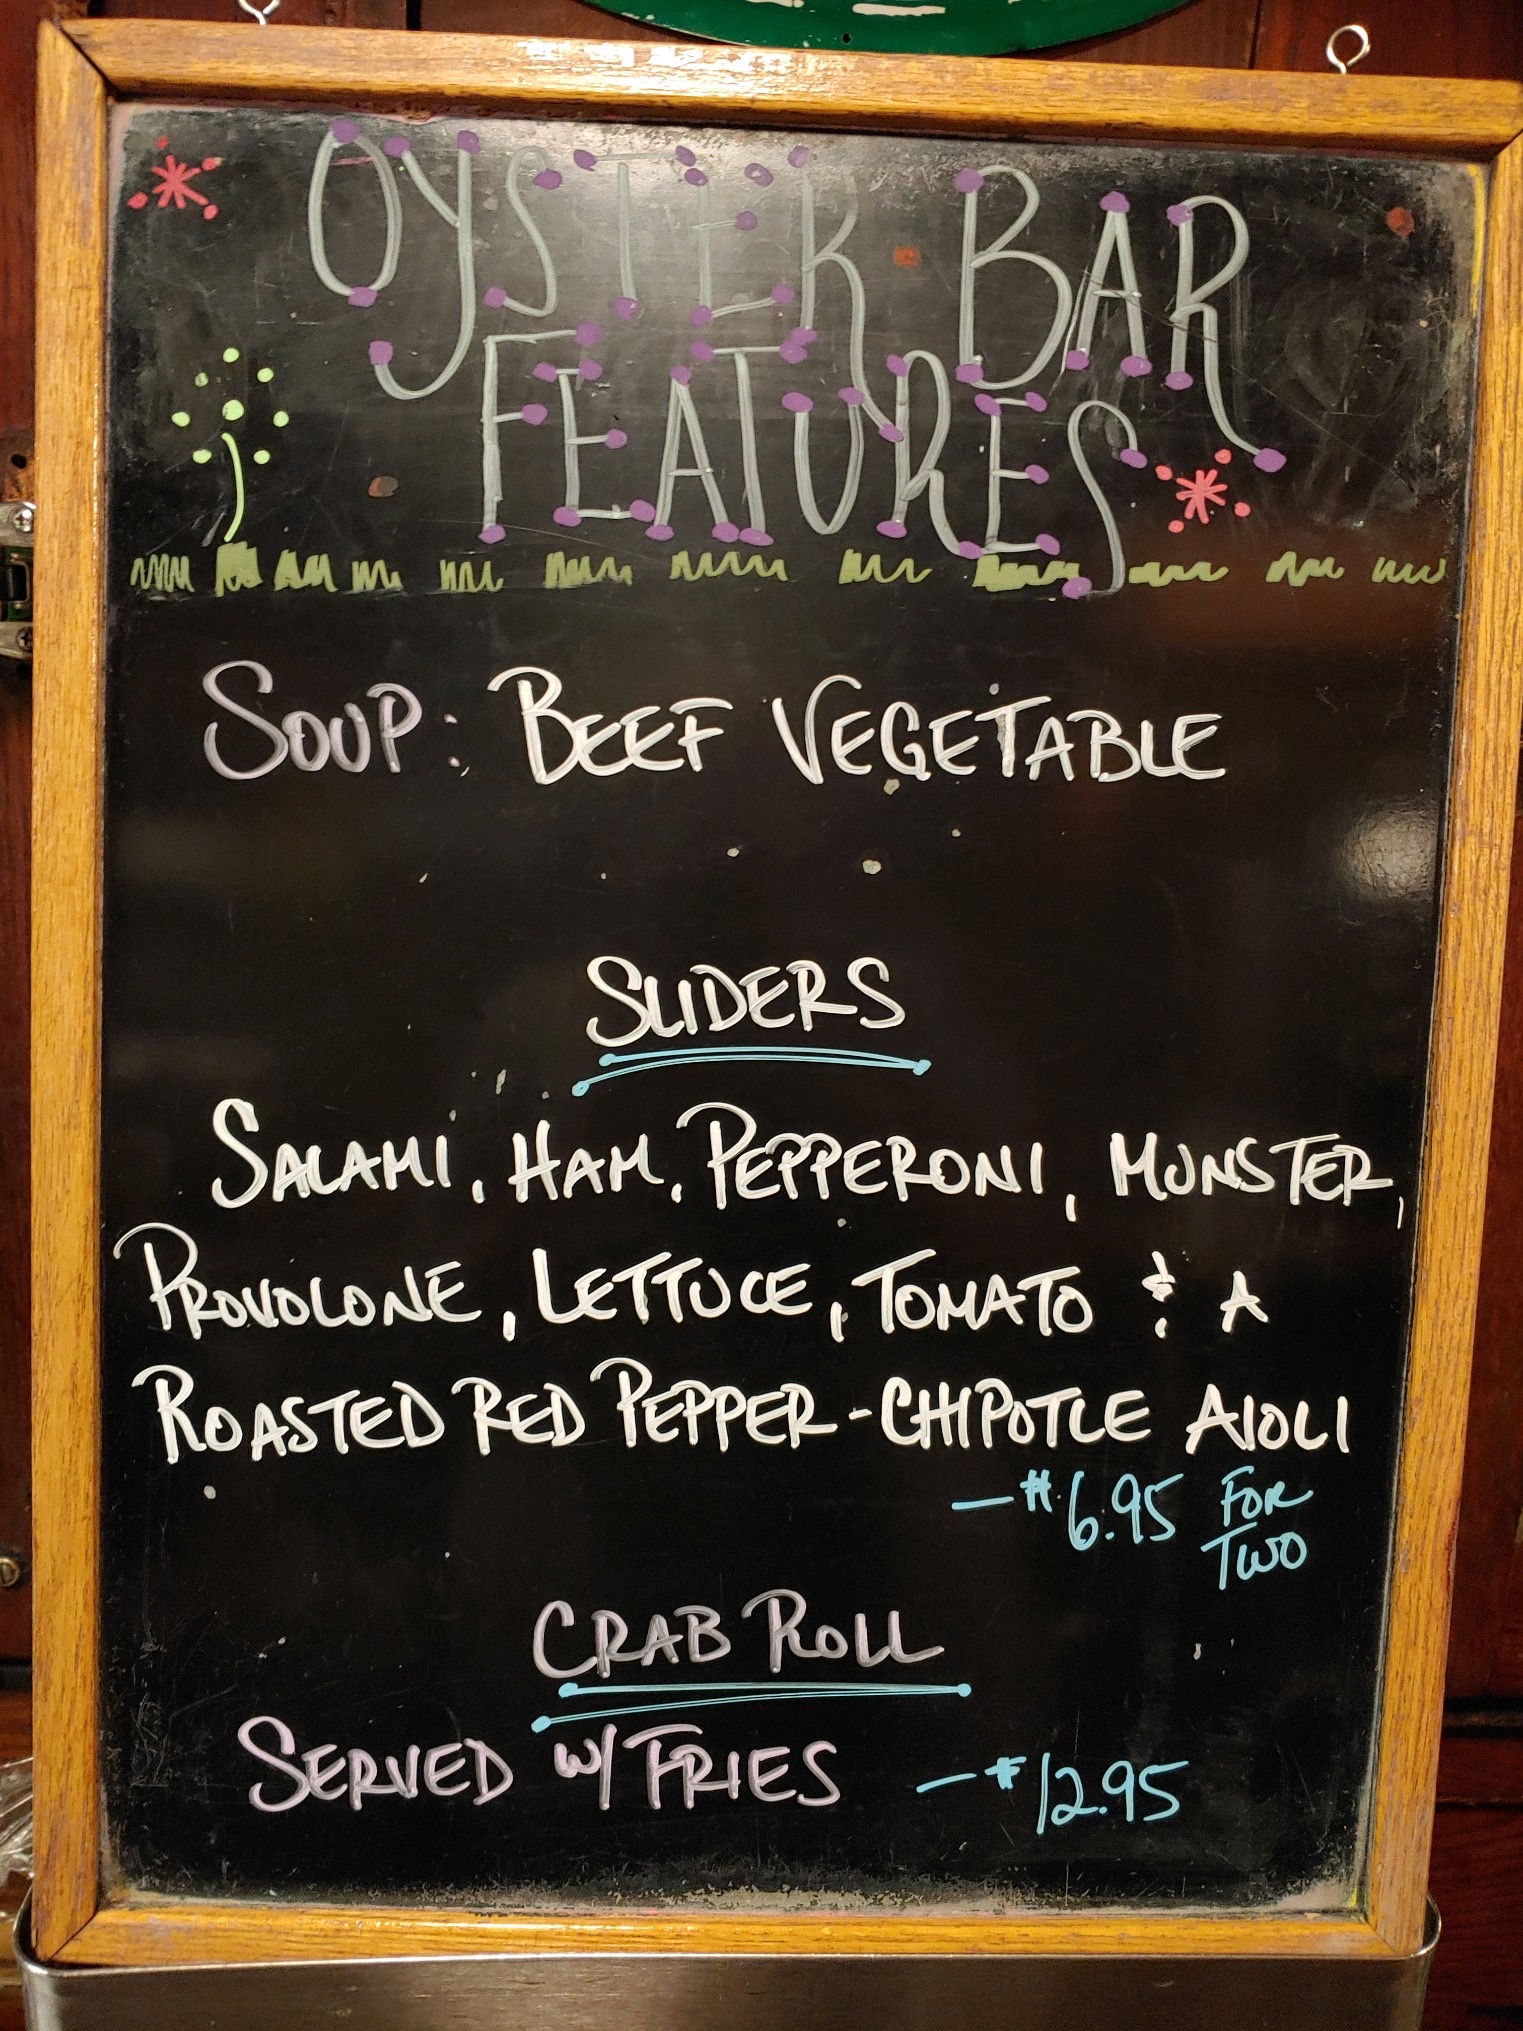 OYSTER BAR
FEATURES
SOUP: BEEF VEGETABLE
SLIDERS
SALAMI, HAM, PEPPERONI, MUNSTER,
PROVOLONE, LETTUCE, TOMATO & A
ROASTED RED PEPPER-CHIPOTLE AIOLI
—$6.95 FOR
TWO
CRAB ROLL
SERVED W/ FRIES —$12.95